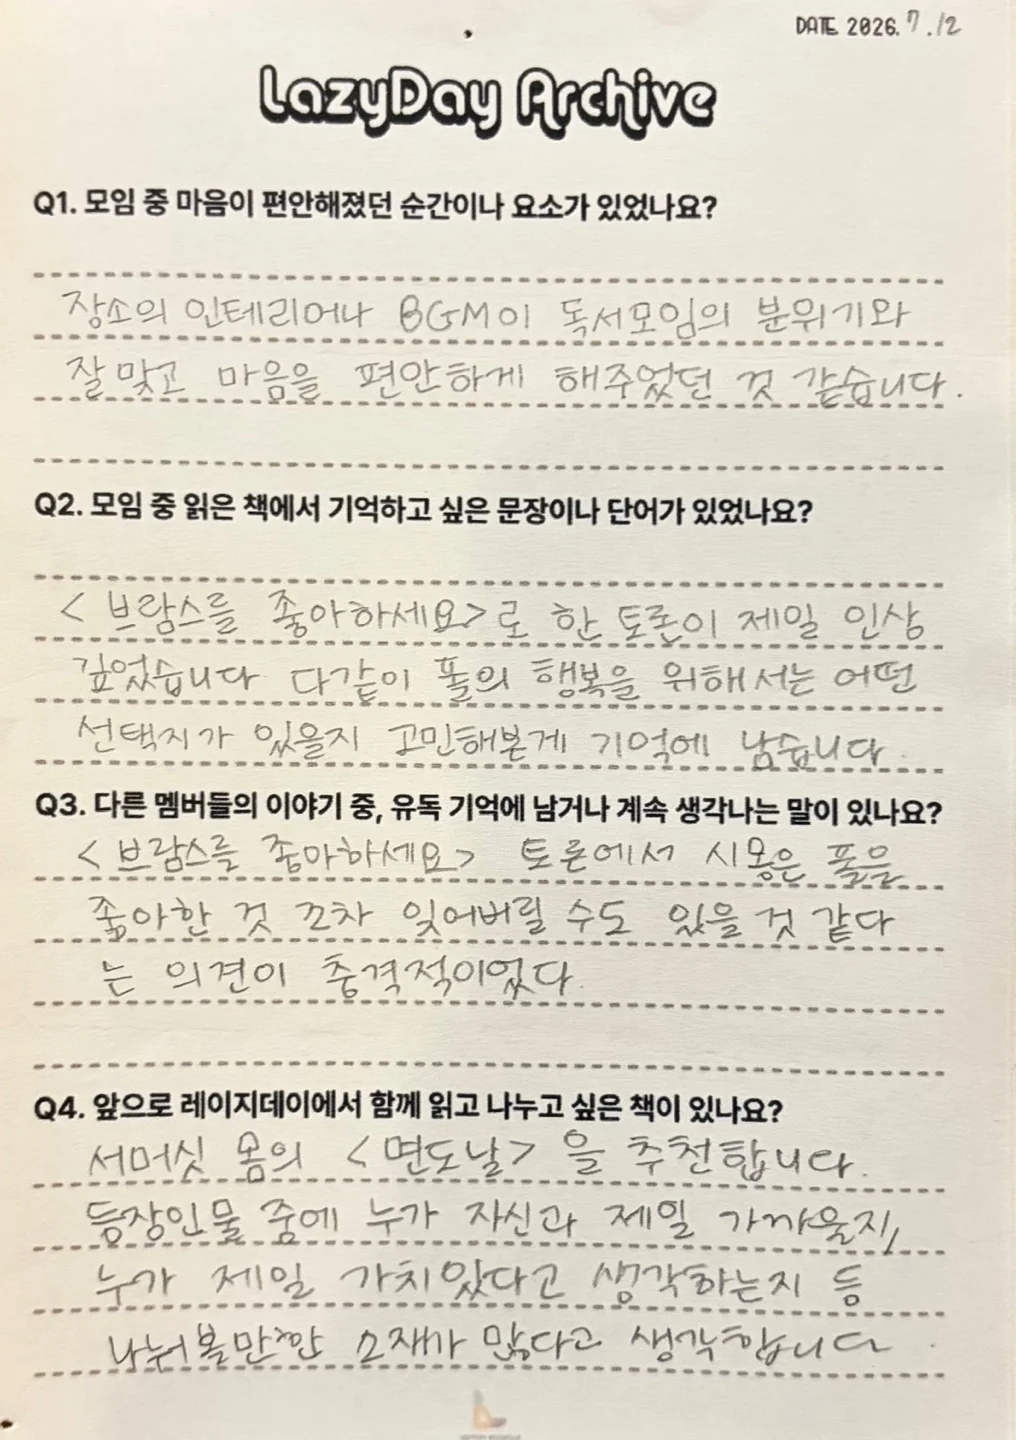 DATE 2026. 7. 12
LazyDay Archive
Q1. 모임 중 마음이 편안해졌던 순간이나 요소가 있었나요?
장소의 인테리어나 BGM이 독서모임의 분위기와
잘 맞고 마음을 편안하게 해주었던 것 같습니다.
Q2. 모임 중 읽은 책에서 기억하고 싶은 문장이나 단어가 있었나요?
<브람스를 좋아하세요>로 한 토론이 제일 인상
깊었습니다. 다같이 폴의 행복을 위해서는 어떤
선택지가 있을지 고민해본게 기억에 남습니다.
Q3. 다른 멤버들의 이야기 중, 유독 기억에 남거나 계속 생각나는 말이 있나요?
<브람스를 좋아하세요> 토론에서 시몽은 폴을
좋아한 것 조차 잊어버릴 수도 있을 것 같다
는 의견이 충격적이었다.
Q4. 앞으로 레이지데이에서 함께 읽고 나누고 싶은 책이 있나요?
서머싯 몸의 <면도날>을 추천합니다.
등장인물 중에 누가 자신과 제일 가까울지,
누가 제일 가치있다고 생각하는지 등
나눠볼만한 소재가 많다고 생각합니다.